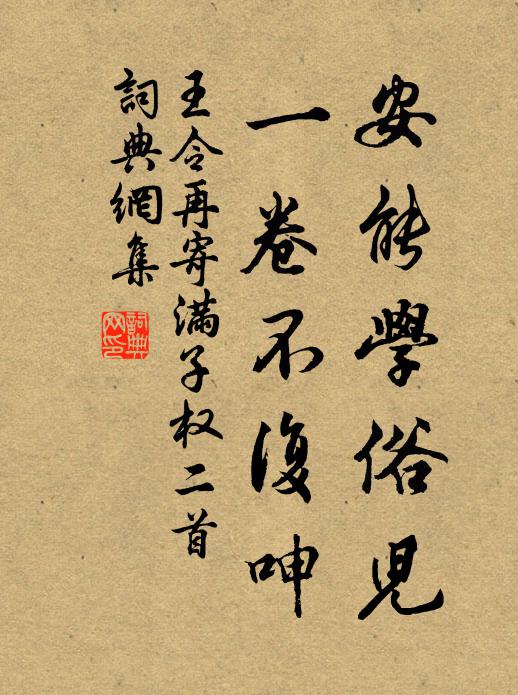 安能學俗兒
一卷不復呻
王令再寄满子权二首
詞典網集
詞典網印